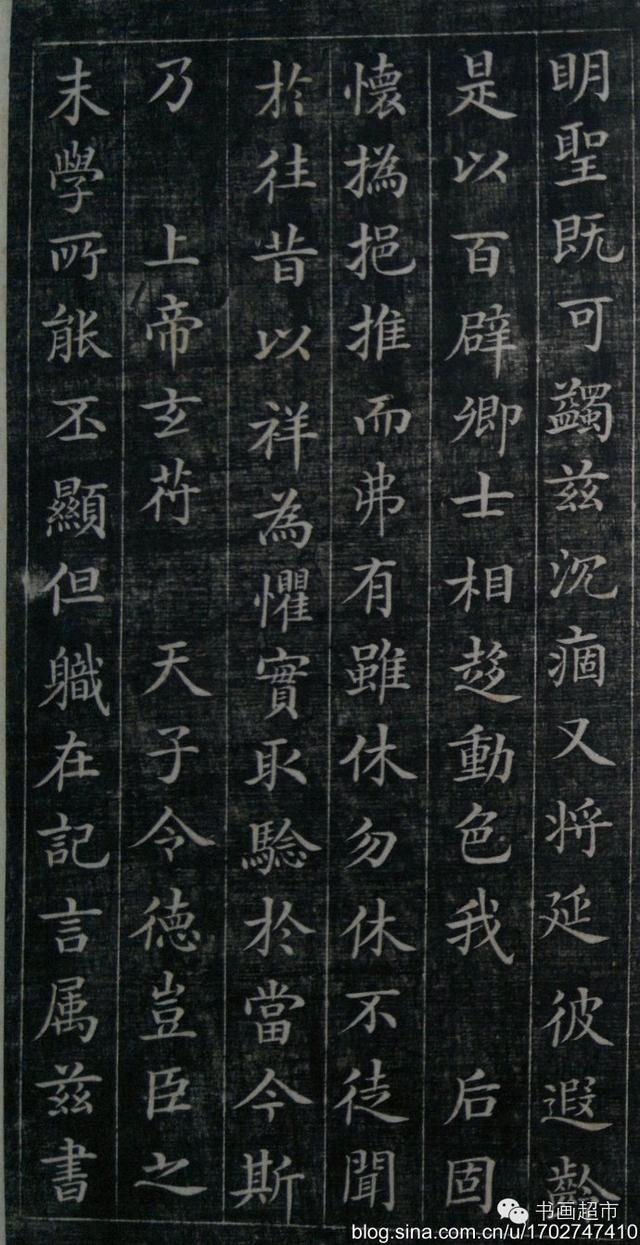 明聖既可蠲茲沉痼又将延彼遐齡
是以百辟卿士相趍動色我 后固
懷撝挹推而弗有雖休勿休不徒聞
於往昔以祥為懼實取驗於當今斯
乃 上帝玄苻 天子令德豈臣之
末學所能丕顯但職在記言属茲書
书画超市
blog.sina.com.cn/u/1702747410